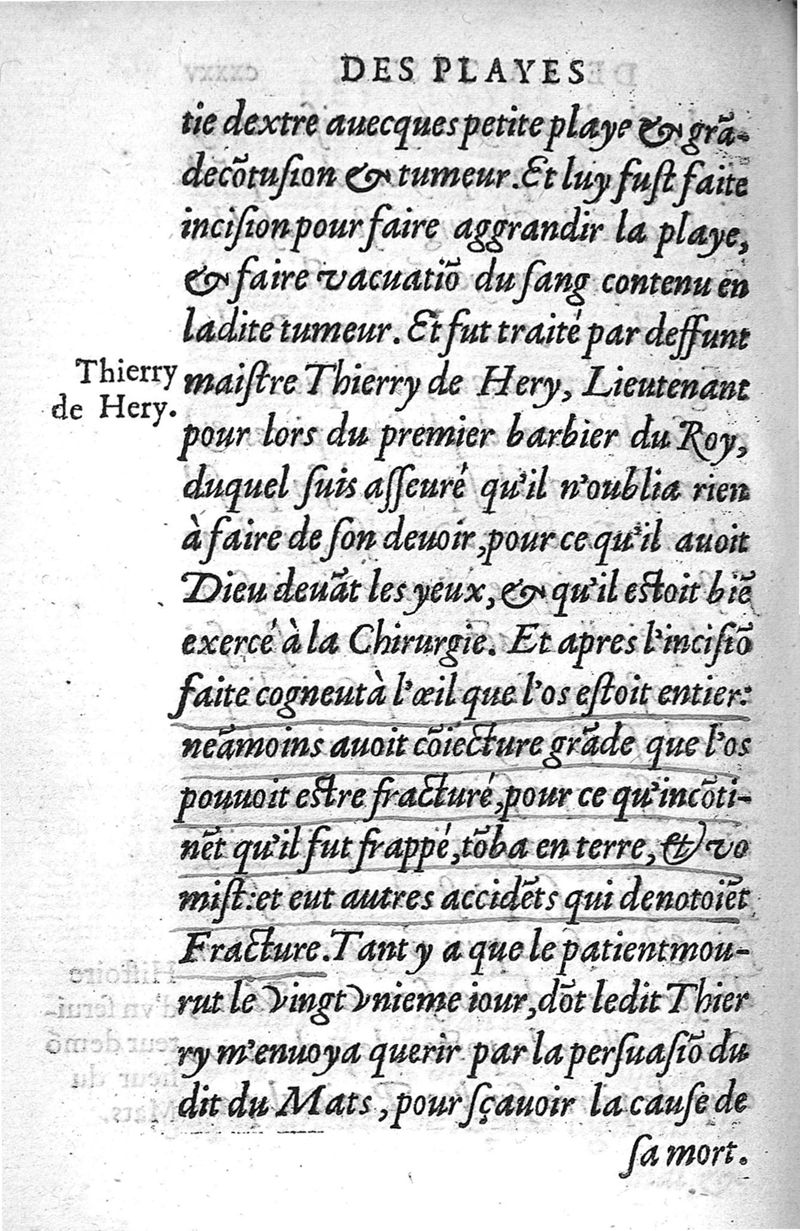 DES PLAYES
tie dextre auecques petite playe & grã-
de cõtusion & tumeur. Et luy fust faite
incision pour faire aggrandir la playe,
& faire vacuatiõ du sang contenu en
ladite tumeur. Et fut traité par deffunt
Thierry
de Hery.
maistre Thierry de Hery, Lieutenant
pour lors du premier barbier du Roy,
duquel suis asseuré qu'il n'oublia rien
à faire de son deuoir, pour ce qu'il auoit
Dieu deuãt les yeux, & qu'il estoit biẽ
exercé à la Chirurgie. Et apres l'incisiõ
faite cogneut à l'œil que l'os estoit entier:
neãmoins auoit cõiecture grãde que l'os
pouuoit estre fracturé, pour ce qu'incõti-
nẽt qu'il fut frappé, tõba en terre, & vo
mist: et eut autres accidẽts qui denotoiẽt
Fracture. Tant y a que le patient mou-
rut le vingt vnieme iour, dõt ledit Thier
ry m'enuoya querir par la persuasiõ du
dit du Mats, pour sçauoir la cause de
sa mort.